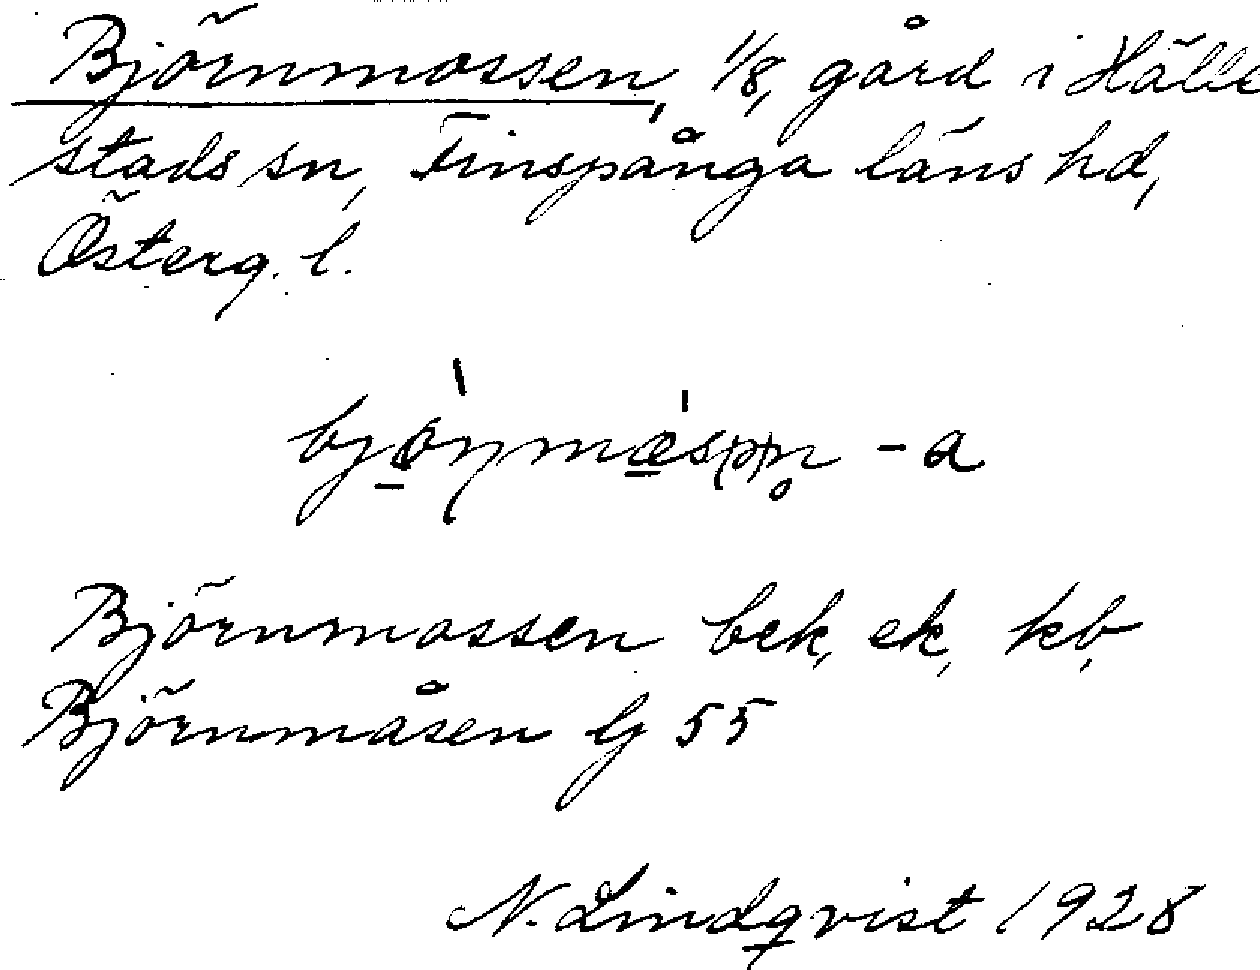 Björnmossen, 1/8, gård i Hälle
stads sn, Finspånga läns hd,
Österg. l.
-a
Björnmossen bek, ek, kb,
Björnmåsen Lj 55
N. Lindqvist 1928